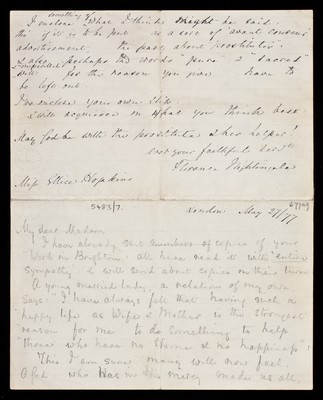 something of
I enclose what I think might be said:
this if it is to be put as a sort of avant coureur
advertisement, the page about prostitutes
& also perhaps the words "pence" & "sacred"
will for the reason you give have to
be left out
I re-enclose your own slip
& will acquiesce in what you think best
May God be with the prostitutes & her helper!
ever your faithful servt
Florence Nightingale
Miss Ellice Hopkins
5483/7.
London May 27/77
My dear Madam
I have already sent numbers of copies of your
"Work in Brighton": all have read it with "entire
Sympathy" & will send about copies in their turn
A young married lady, a relation of my own
says: "I have always felt that having such a
happy life as Wife & Mother is the strongest
reason for me to do something to help
those who have no Home & no happiness"!
This I am sure many will now feel.
O God who has in His mercy made us all,